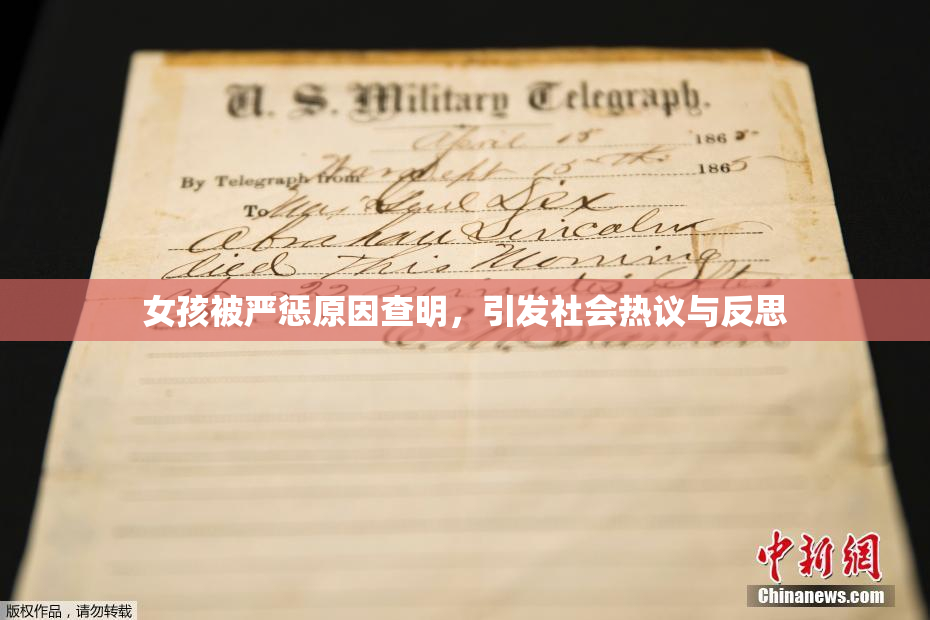 U. S. Military Telegraph.
April 15 1865
By Telegraph from War Dept 15th 1865
To Maj Genl Dix
Abraham Lincoln
died This Morning
at 22 minutes after
女孩被严惩原因查明，引发社会热议与反思
E. M. Stanton
中新网
Chinanews.com
版权作品，请勿转载